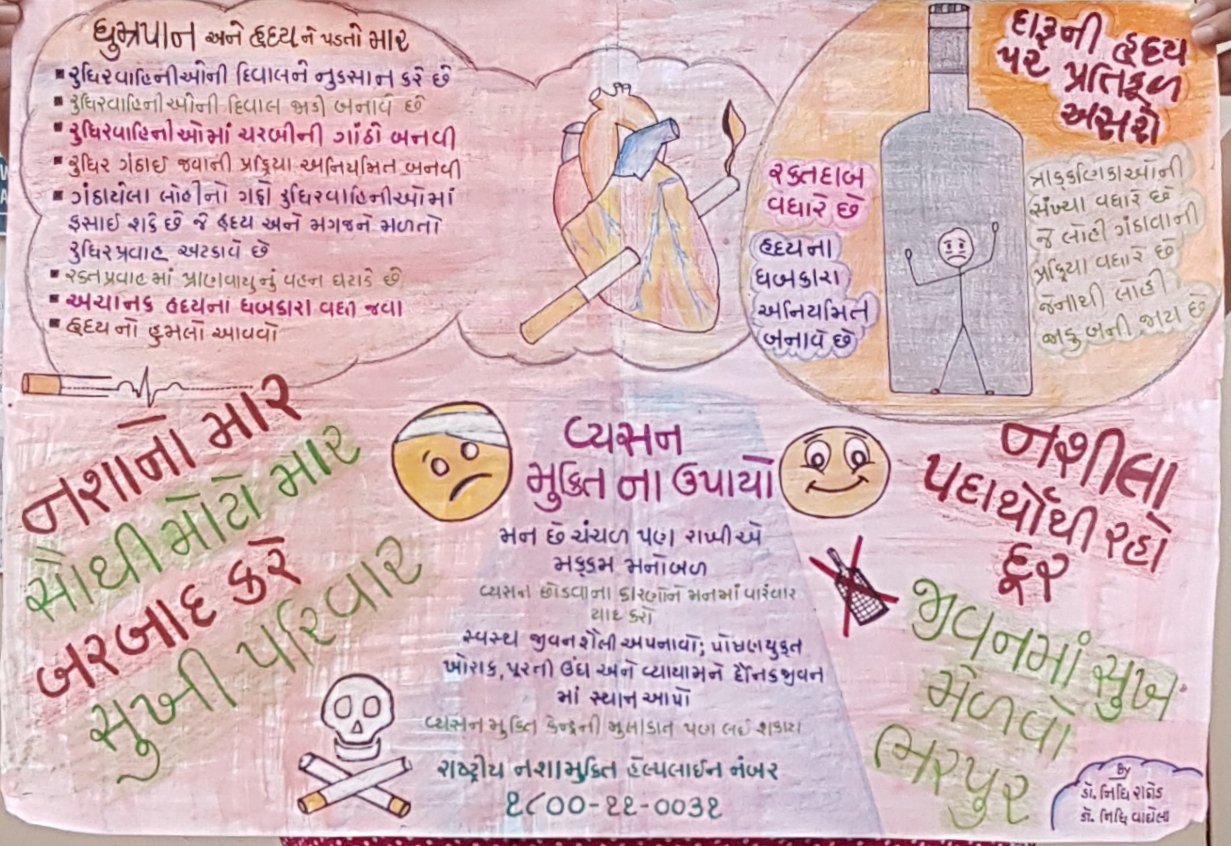 ધુમ્રપાન અને હૃદય ને પડતો માર
રુધિરવાહિનીઓની દિવાલને નુકસાન કરે છે
રુધિરવાહિનીઓની દિવાલ જાડી બનાવે છે
રુધિરવાહિનીઓમાં ચરબીની ગાંઠો બનવી
રુધિર ગંઠાઈ જવાની પ્રક્રિયા અનિયમિત બનવી
ગંઠાયેલા લોહીનો ગઠ્ઠો રુધિરવાહિનીઓમાં
ફસાઈ શકે છે જે હૃદય અને મગજને મળતો
રુધિરપ્રવાહ અટકાવે છે
રક્તપ્રવાહ માં પ્રાણવાયુનું વહન ઘટાડે છે
અચાનક હૃદયના ધબકારા વધી જવા
હૃદય નો હુમલો આવવો
દારૂની હૃદય
પર પ્રતિકૂળ
અસરો
રક્તદાબ
વધારે છે
હૃદયના
ધબકારા
અનિયમિત
બનાવે છે
ત્રાકકણિકાઓની
સંખ્યા વધારે છે
જે લોહી ગંઠાવાની
પ્રક્રિયા વધારે છે
જેનાથી લોહી
જાડુ બની જાય છે
નશાનો માર
સૌથી મોટો માર
બરબાદ કરે
સુખી પરિવાર
વ્યસન
મુક્તિ ના ઉપાયો
મન છે ચંચળ પણ રાખીએ
મક્કમ મનોબળ
વ્યસન છોડવાના કારણોને મનમાં વારંવાર
યાદ કરો
સ્વસ્થ જીવનશૈલી અપનાવો; પોષણયુક્ત
ખોરાક, પૂરની ઉંઘ અને વ્યાયામને દૈનિકજીવન
માં સ્થાન આપો
વ્યસન મુક્તિ કેન્દ્રની મુલાકાત પણ લઈ શકાય
રાષ્ટ્રીય નશામુક્તિ હેલ્પલાઈન નંબર
૧૮૦૦-૧૧-૦૦૩૧
નશીલા
પદાર્થોથી રહો
દૂર
જીવનમાં સુખ
મેળવો
ભરપુર
By
ડૉ. નિધિ રાઠોડ
ડૉ. નિધિ વાઘેલા